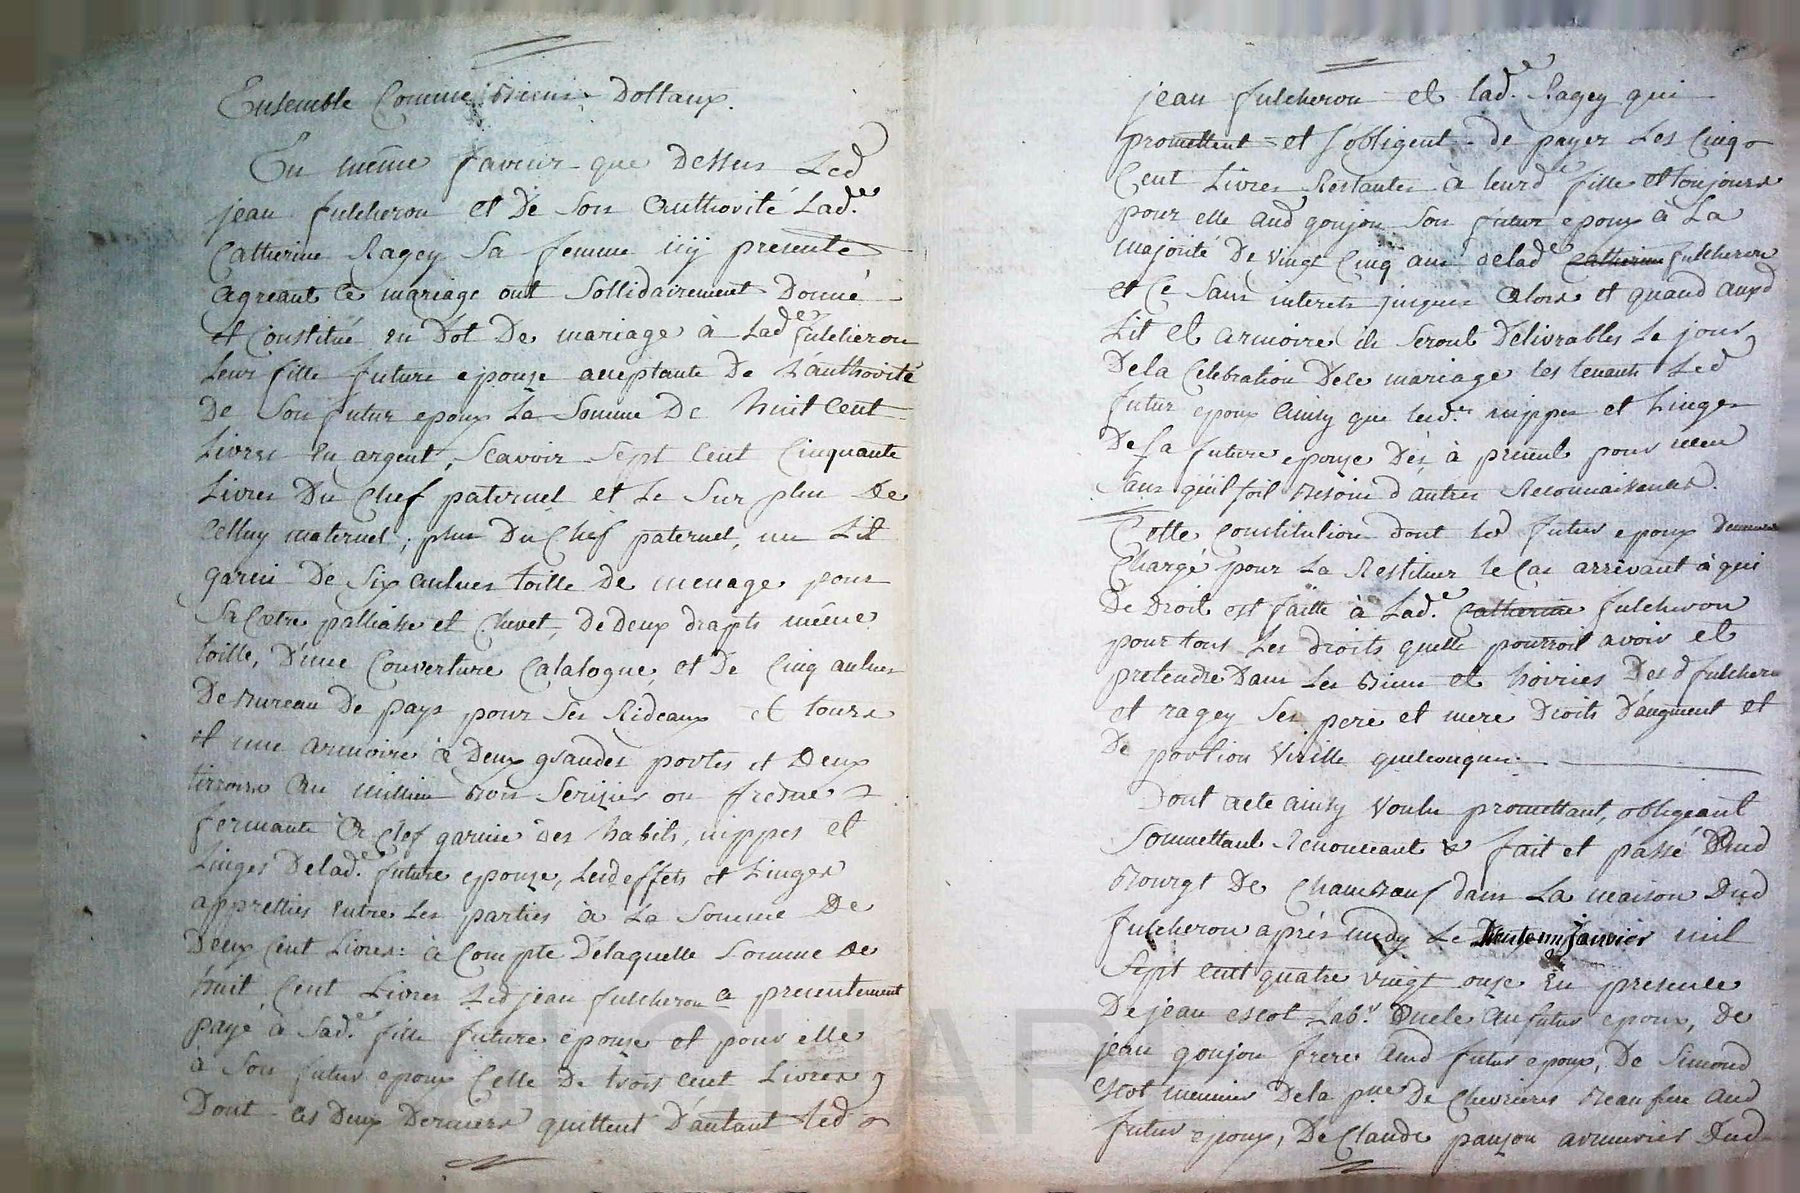 Ensemble Comme Biens Dottaux.
En même faveur que dessus Led
jean fulcheron et De Son Authorité Lad.e
Catherine Ragey Sa femme icÿ presente
Agreant Ce mariage ont Sollidairement Donné
et Constitué en Dot De mariage à Lad.e fulcheron
Leur fille future epouze acceptante De L'authorité
De Son futur epoux La Somme De huit Cent
Livres En argent, Scavoir Sept Cent Cinquante
Livres Du Chef paternel et Le Sur plus De
Celluy maternel; plus Du Chef paternel, un Lit
garni De Six aulnes toille De menage pour
Sa Coetre palliasse et Chevet, de deux drapts même
toille, D'une Couverture Catalogne et De Cinq aulnes
De Bureau De pays pour Ses Rideaux et tours
et une armoire à Deux grandes portes et Deux
tirroirs Au millieu Bois Serizier ou fresne
fermante à Clef garnie des habits, nippes et
Linges De lad.e future epouze, Lesd effets et Linges
appretiés entre Les parties à La Somme De
Deux Cent Livres: à Compte De laquelle Somme De
huit Cent Livres Led jean fulcheron a presentement
payé à Sad.e fille future epouze et pour elle
à Son futur epoux Celle De trois Cent Livres
Dont Ces Deux Derniers quittent D'autant Led
jean fulcheron et lad.e Ragey qui
promettent et s'obligent de payer Les Cinq
Cent Livres Restantes à leurd.e fille et toujours
pour elle aud goujon Son futur epoux à La
majorité De vingt Cinq ans delad.e Catherine fulcheron
et Ce Sans interets jusques Alors et quand auxd
Lit et armoire ils Seront Delivrables Le jour
De la Celebration De Ce mariage les tenants Led
futur epoux ainsy que lesd.s nippes et Linges
De sa future epouze Dès à present pour reçu
Sans qu'il soit Besoin d'autres Reconnaissances.
Cette Constitution dont led futur epoux demeure
Chargé pour La Restituer le Cas arrivant à qui
De Droit est faitte à Lad.e Catherine fulcheron
pour tous Les droits quelle pourroit avoir et
pretendre Dans Les Biens et hoiries Desd fulcheron
et ragey Ses pere et mere Droits D'augment et
De portion Virille quelconques.
Dont acte ainsy Voulu promettant, obligeant
Soumettant Renonceant & fait et passé Aud
Bourgt De Chambœuf dans La maison Dud
fulcheron aprés midy Le janvier mil
Sept Cent quatre vingt onze En presence
De jean escot Lab.r oncle Au futur epoux, de
jean goujon frere Aud futur epoux, De Simond
escot meunier De la p.sse De Chevrieres Beau frere Aud
futur epoux, De Claude panjon armurier Dud